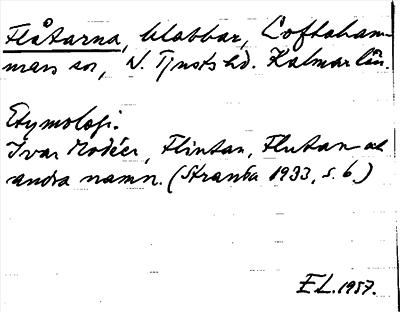 Flåtarna, klabbar, Loftaham-
mars sn, N. Tjusts hd. Kalmar län.
Etymologi.
Ivar Modéer, Flintan, Flutan och
andra namn. (Stranda 1933, s. 6.)
EL. 1957.